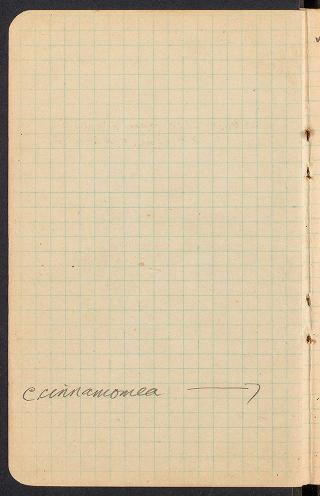 C. cinnamomea ⟶